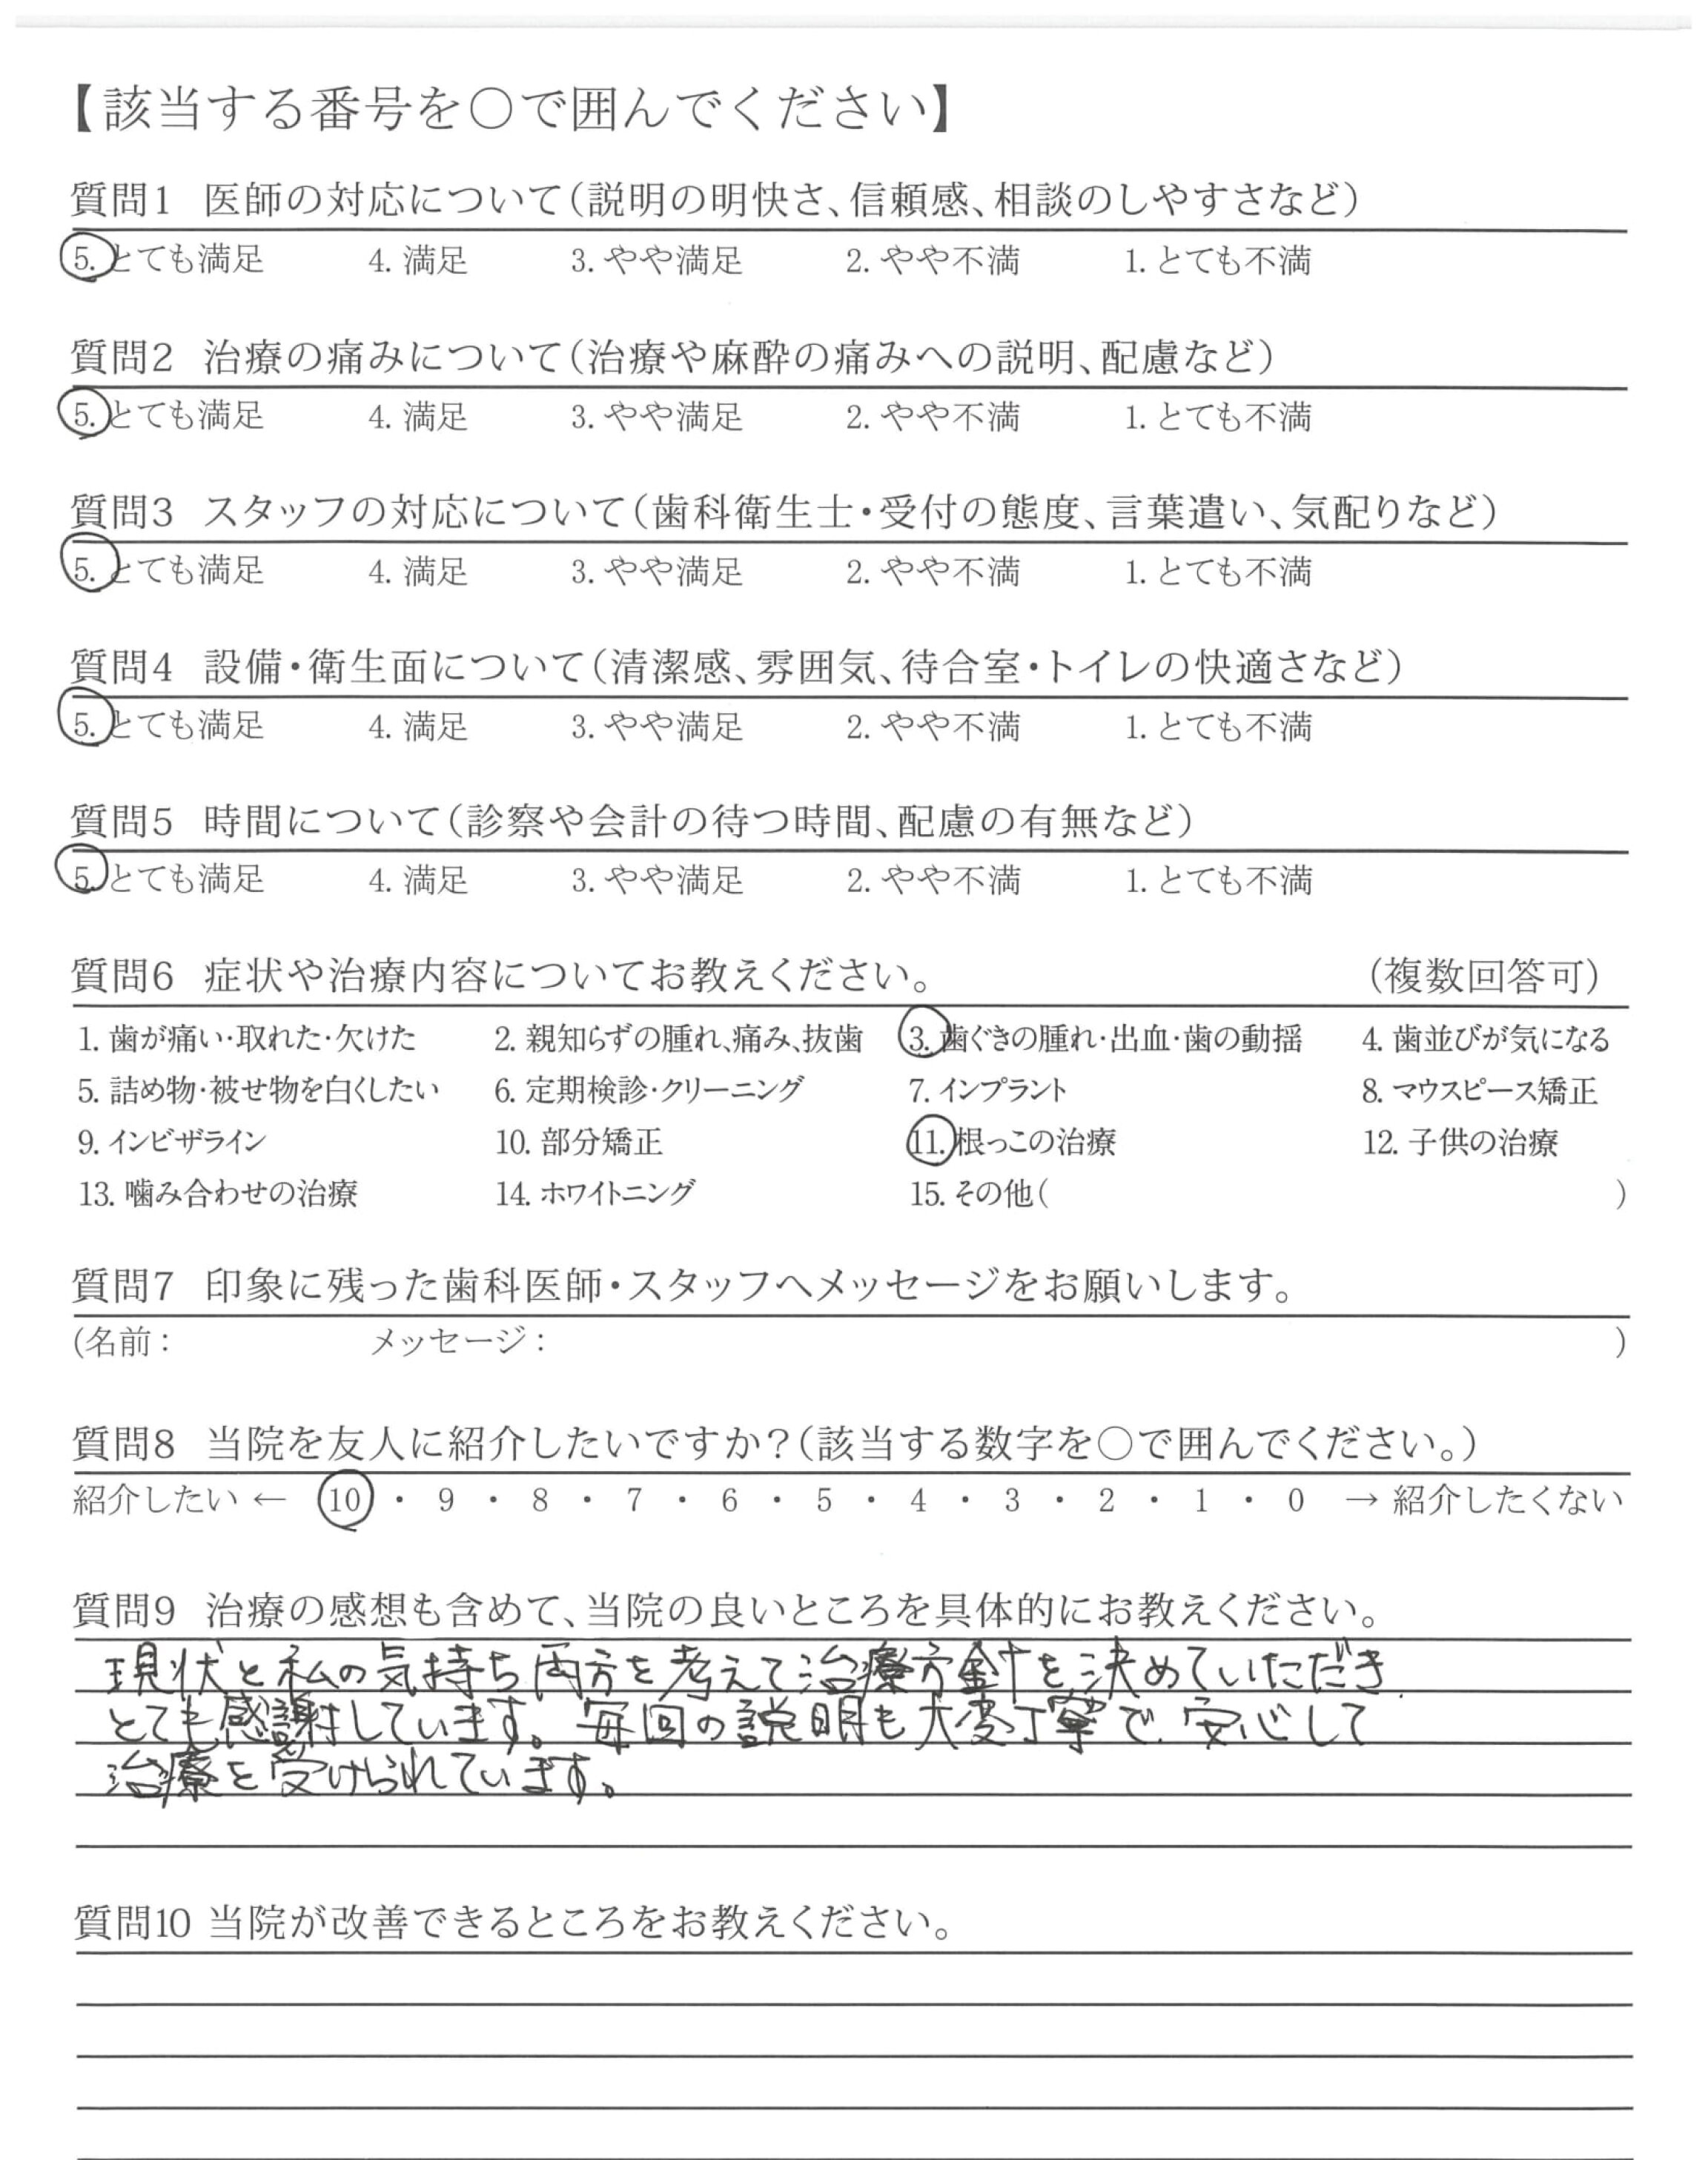 【該当する番号を○で囲んでください】
質問1 医師の対応について(説明の明快さ、信頼感、相談のしやすさなど)
5. とても満足 4. 満足 3. やや満足 2. やや不満 1. とても不満
質問2 治療の痛みについて(治療や麻酔の痛みへの説明、配慮など)
5. とても満足 4. 満足 3. やや満足 2. やや不満 1. とても不満
質問3 スタッフの対応について(歯科衛生士・受付の態度、言葉遣い、気配りなど)
5. とても満足 4. 満足 3. やや満足 2. やや不満 1. とても不満
質問4 設備・衛生面について(清潔感、雰囲気、待合室・トイレの快適さなど)
5. とても満足 4. 満足 3. やや満足 2. やや不満 1. とても不満
質問5 時間について(診察や会計の待つ時間、配慮の有無など)
5. とても満足 4. 満足 3. やや満足 2. やや不満 1. とても不満
質問6 症状や治療内容についてお教えください。 (複数回答可)
1. 歯が痛い・取れた・欠けた 2. 親知らずの腫れ、痛み、抜歯 3. 歯ぐきの腫れ・出血・歯の動揺 4. 歯並びが気になる
5. 詰め物・被せ物を白くしたい 6. 定期検診・クリーニング 7. インプラント 8. マウスピース矯正
9. インビザライン 10. 部分矯正 11. 根っこの治療 12. 子供の治療
13. 噛み合わせの治療 14. ホワイトニング 15. その他( )
質問7 印象に残った歯科医師・スタッフへメッセージをお願いします。
(名前: メッセージ: )
質問8 当院を友人に紹介したいですか?(該当する数字を○で囲んでください。)
紹介したい ← 10 ・ 9 ・ 8 ・ 7 ・ 6 ・ 5 ・ 4 ・ 3 ・ 2 ・ 1 ・ 0 → 紹介したくない
質問9 治療の感想も含めて、当院の良いところを具体的にお教えください。
現状と私の気持ち両方を考えて治療方針を決めていただき
とても感謝しています。毎回の説明も大変丁寧で、安心して
治療を受けられています。
質問10 当院が改善できるところをお教えください。